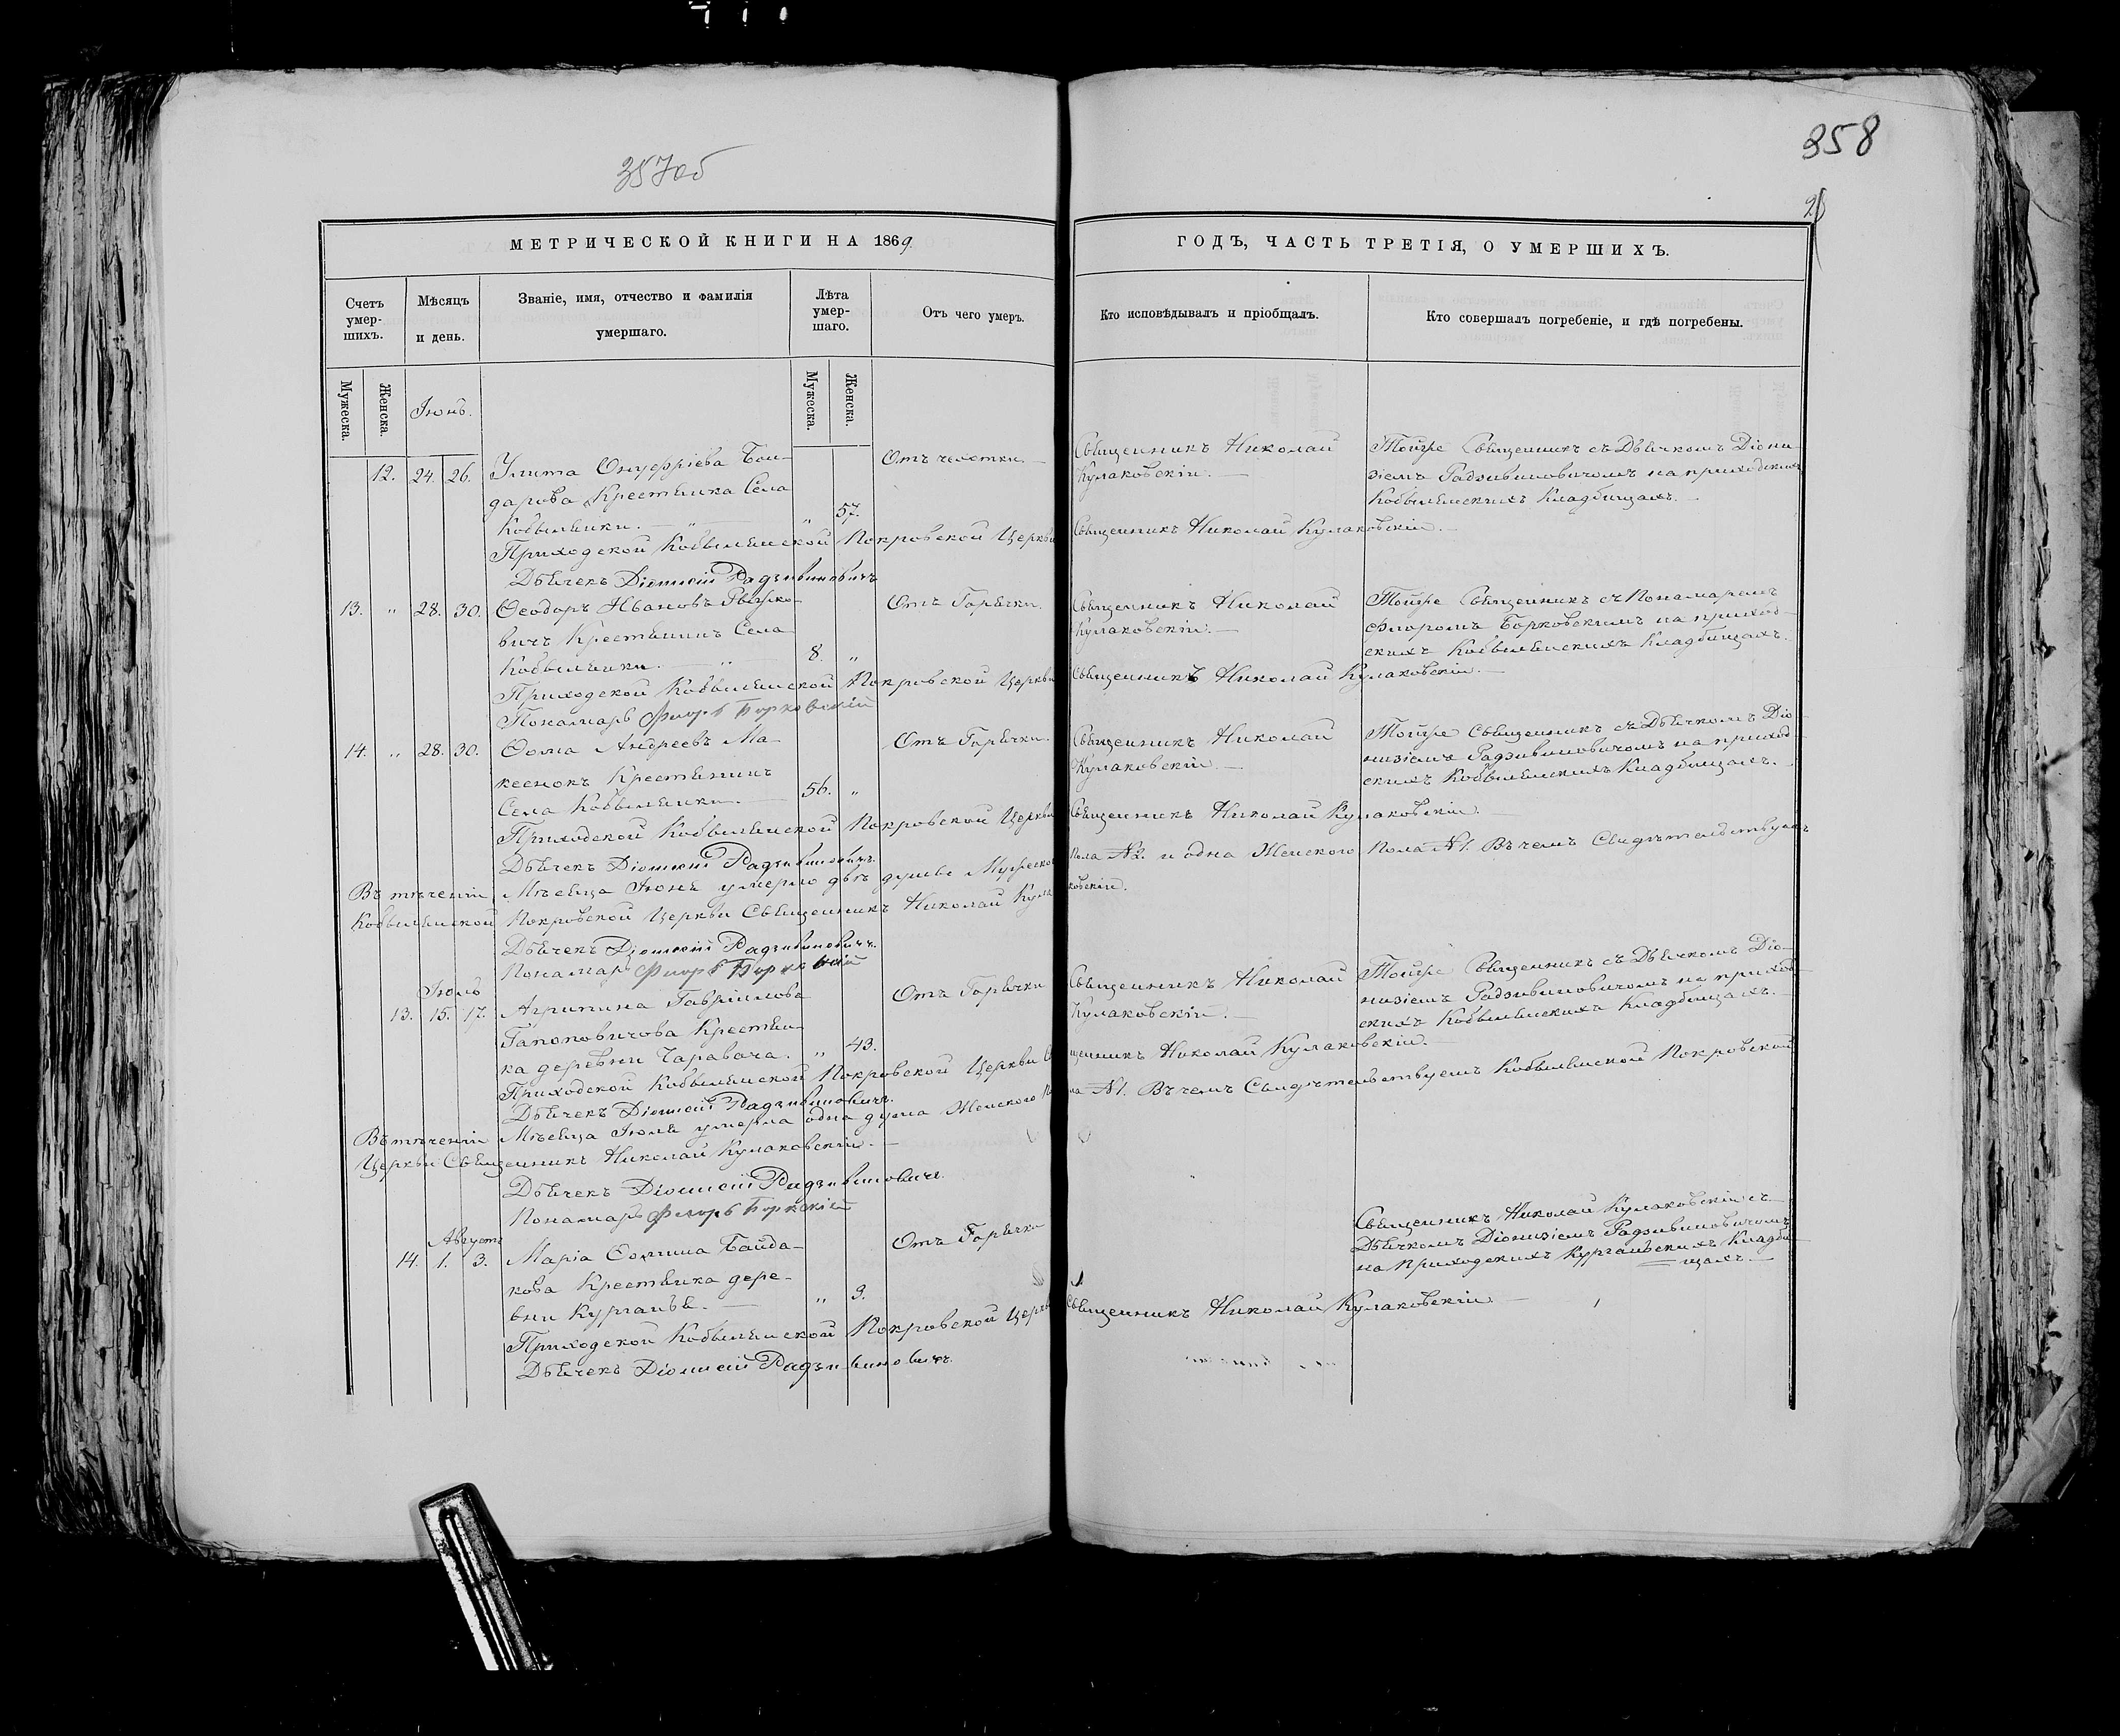 357об
358
МЕТРИЧЕСКОЙ КНИГИ НА 1869.
ГОДЪ, ЧАСТЬ ТРЕТІЯ, О УМЕРШИХЪ.
Счетъ умер-шихъ.
Мѣсяцъ и день.
Званіе, имя, отчество и фамилія умершаго.
Лѣта умер-шаго.
Отъ чего умеръ.
Кто исповѣдывалъ и пріобщалъ.
Кто совершалъ погребеніе, и гдѣ погребены.
Мужеска.
Женска.
Іюнь.
Мужеска.
Женска.
12. 24. 26. Улита Онуфріева Бон-
дарова Крестьянка Села
Кобыльники. — „ 57.
Отъ чехотки.
Священникъ Николай
Кулаковскій. —
Тойже Священникъ съ Дьячкомъ Діони-
зіемъ Радзивиновичомъ на приходскихъ
Кобыльникскихъ Кладбищахъ. —
Приходской Кобыльникской Покровской Церкви Священникъ Николай Кулаковскій. —
Дьячекъ Діонисій Радзивиновичъ
13. „ 28. 30. Ѳеодоръ Ивановъ
вичъ Крестьянинъ Села
Кобыльники. — 8. „
Отъ Горячки.
Священникъ Николай
Кулаковскій. —
Тойже Священникъ съ Понамаремъ
Флоромъ Борковскимъ на приход-
скихъ Кобыльникскихъ Кладбищахъ.
Приходской Кобыльникской Покровской Церкви Священникъ Николай Кулаковскій. —
Понамарь Флоръ Борковскій
14. „ 28. 30. Ѳома Андреевъ Ма-
ксенокъ Крестьянинъ
Села Кобыльники. — 56. „
Отъ Горячки.
Священникъ Николай
Кулаковскій. —
Тойже Священникъ съ Дьячкомъ Діо-
низіемъ Радзивиновичомъ на приход-
скихъ Кобыльникскихъ Кладбищахъ.
Приходской Кобыльникской Покровской Церкви Священникъ Николай Кулаковскій.
Дьячекъ Діонисій Радзивиновичъ.
Въ теченіи Мѣсяца Іюня умерло двѣ душы Мужеско Пола №2. и одна Женского Пола №1. Въ чемъ Свидѣтелствуетъ
Кобыльникской Покровской Церкви Священникъ Николай Кулаковскій.
Дьячекъ Діонисій Радзивиновичъ.
Понамарь Флоръ Борковскій
Іюль
13. 15. 17. Агрипина Гавріилова
Гапоновичова Крестьян-
ка деревни Чаравача. „ 43.
Отъ Горячки
Священникъ Николай
Кулаковскій. —
Тойже Священникъ съ Дьячкомъ Діо-
низіемъ Радзивиновичомъ на приход-
скихъ Кобыльникскихъ Кладбищахъ. —
Приходской Кобыльникской Покровской Церкви Священникъ Николай Кулаковскій. —
Дьячекъ Діонисій Радзивиновичъ.
Въ теченіи Мѣсяца Іюля умерла одна душа Женского Пола №1. Въ чемъ Свидѣтельствуетъ Кобыльникской Покровской
Церкви Священникъ Николай Кулаковскій. —
Дьячекъ Діонисій Радзивиновичъ.
Понамарь Флоръ Борковскій
Августъ
14. 1. 3. Марія Ѳомина Байда-
кова Крестьянка дере-
вни Курганья. — „ 9.
Отъ Горячки
Священникъ Николай Кулаковскій съ
Дьячкомъ Діонизіемъ Радзивиновичомъ
на Приходскихъ Курганьскихъ Кладби-
щахъ. —
Приходской Кобыльникской Покровской Церкви Священникъ Николай Кулаковскій. —
Дьячекъ Діонисій Радзивиновичъ.